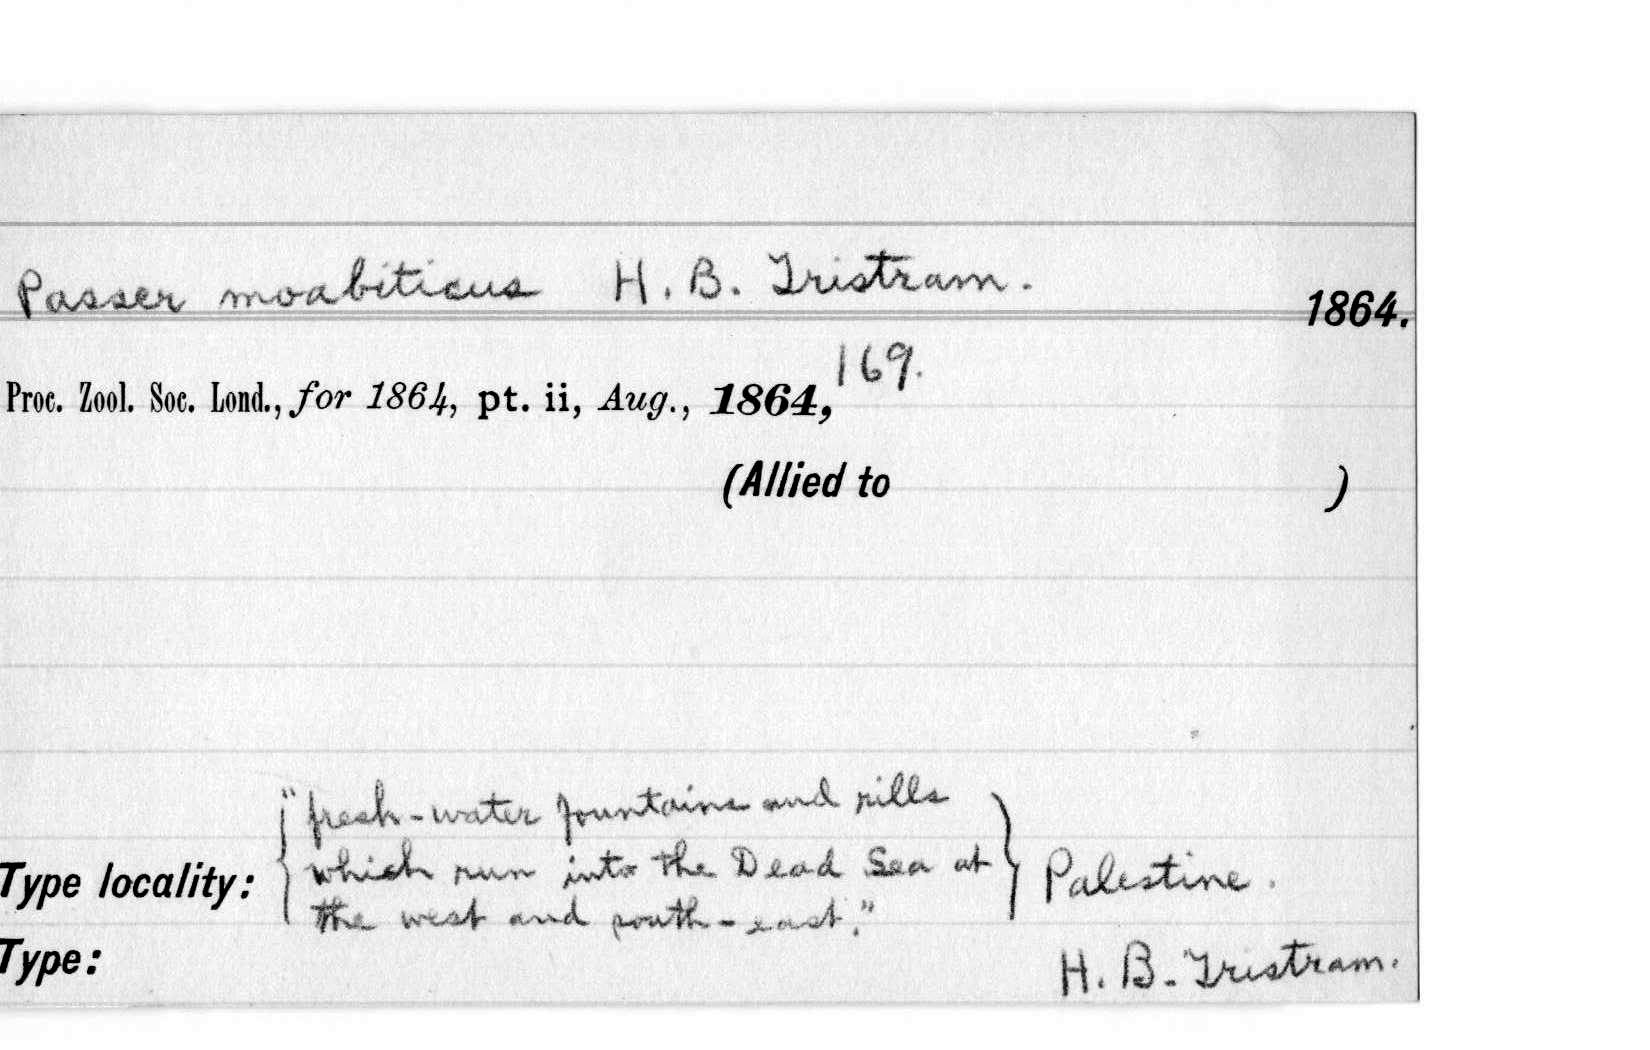 Passer moabiticus H. B. Tristram.
1864.
Proc. Zool. Soc. Lond., for 1864, pt. ii, Aug., 1864, 169.
(Allied to )
"fresh-water fountains and rills
which run into the Dead Sea at
Type locality: Palestine.
the west and south-east."
Type: H. B. Tristram.